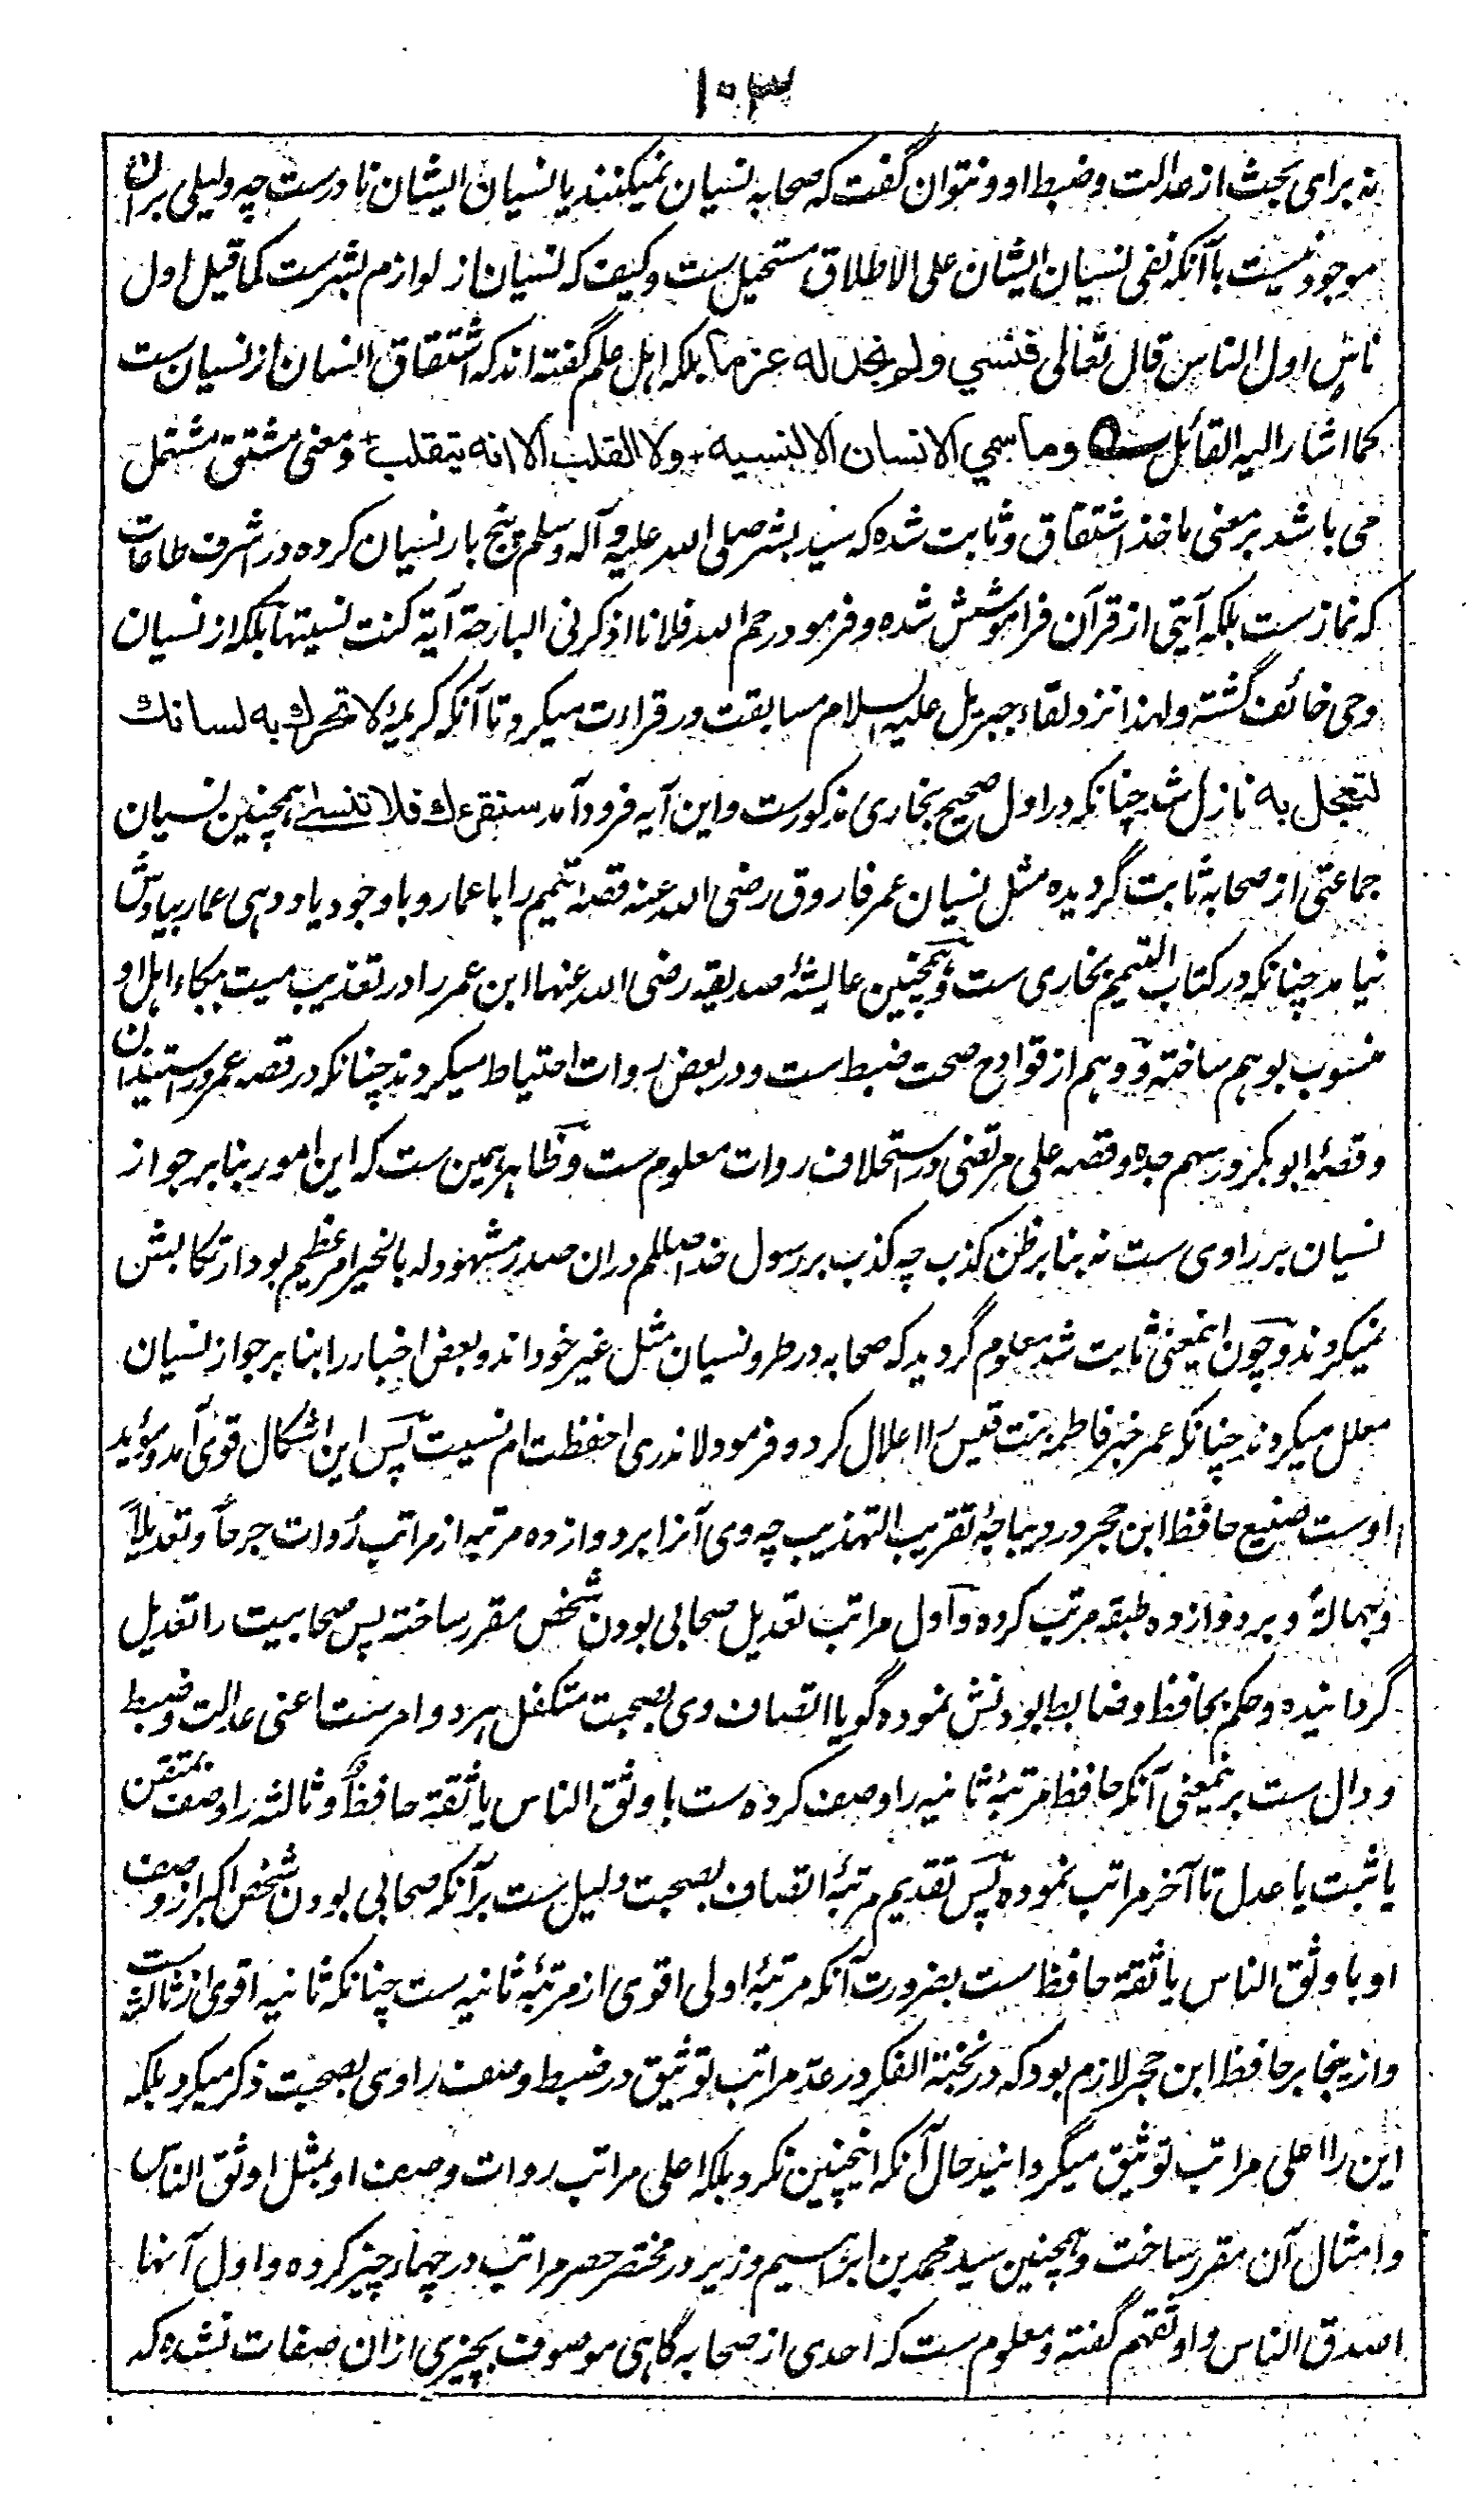 ۱۰۳
نه برای بحث از عدالت وضبط او ونتوان گفت که صحابه نسیان نمیکنند یا نسیان ایشان نادرست چه دلیلی بران
موجود نیست باآنکه نفی نسیان ایشان علی الاطلاق مستحیل ست وکیف که نسیان از لوازم بشرست کما قیل اول
ناس اول الناس قال تعالی فنسي ولم نجد له عزما بلکه اهل علم گفته اند که اشتقاق انسان از نسیان ست
کما اشار الیه القائل وما سمي الانسان الا لنسيه + ولا القلب الا انه يتقلب + ومعنی مشتق مشتمل
می باشد بر معنی ماخذ اشتقاق وثابت شده که سید بشر صلی الله علیه وآله وسلم پنج بار نسیان کرده در اشرف طاعات
که نمازست بلکه آیتی از قرآن فراموشش شده وفرمود رحم الله فلانا اذکرنی البارحة آیة کنت نسیتها بلکه از نسیان
وحی خائف گشته ولهذا نزد لقاء جبریل علیه السلام مسابقت در قراءت میکرد تا آنکه کریمهٔ لا تحرك به لسانك
لتعجل به نازل شد چنانکه در اول صحیح بخاری مذکورست واین آیه فرود آمد سنقرءك فلا تنسى همچنین نسیان
جماعتی از صحابه ثابت گردیده مثل نسیان عمر فاروق رضی الله عنه قصهٔ تیمم را با عمار وباوجود یاددهی عمار بیادش
نیامد چنانکه در کتاب التیمم بخاری ست وهمچنین عایشهٔ صدیقه رضی الله عنها ابن عمر را در تعذیب میت ببکاء اهل او
منسوب بوهم ساخته ووهم از قوادح صحت ضبط ست ودر بعض روات احتیاط میکردند چنانکه در قصه عمر در استیذان
وقصهٔ ابوبکر در سهم جده وقصه علی مرتضی در استحلاف روات معلوم ست وظاهر همین ست که این امور بنا بر جواز
نسیان بر راوی ست نه بنا بر ظن کذب چه کذب بر رسول خدا صللم دران صدر مشهود له بالخیر امر عظیم بود ارتکابش
نمیکردند وچون اینمعنی ثابت شد معلوم گردید که صحابه در طرو نسیان مثل غیر خود اند وبعض اخبار را بنا بر جواز نسیان
معلل میکردند چنانکه عمر خبر فاطمه بنت قیس را اعلال کرد وفرمود لا ندری احفظت ام نسیت پس این اشکال قوی آمد ومؤید
اوست صنیع حافظ ابن حجر در دیباچهٔ تقریب التهذیب چه وی آنرا بر دوازده مرتبه از مراتب رُوات جرحاً وتعدیلاً
وجهالةً وبر دوازده طبقه مرتب کرده واول مراتب تعدیل صحابی بودن شخص مقرر ساخته پس صحابیت را تعدیل
گردانیده وحکم بحافظ وضابط بودنش نموده گویا اتصاف وی بصحبت متکفل هر دو امرست اعنی عدالت وضبط
ودال ست برینمعنی آنکه حافظ مرتبهٔ ثانیه را وصف کرده ست باوثق الناس یا ثقة حافظ وثالثه را وصف بمتقن
یا ثبت یا عدل تا آخر مراتب نموده پس تقدیم مرتبهٔ اتصاف بصحبت دلیل ست برآنکه صحابی بودن شخص اکبر از وصف
او باوثق الناس یا ثقة حافظ ست بضرورت آنکه مرتبهٔ اولی اقوی از مرتبهٔ ثانیه ست چنانکه ثانیه اقوی از ثالثه است
وازینجا بر حافظ ابن حجر لازم بود که در نخبة الفکر در عدّ مراتب توثیق در ضبط وصف راوی بصحبت ذکر میکرد بلکه
این را اعلی مراتب توثیق میگردانید حال آنکه اینچنین نکرد بلکه اعلی مراتب روات وصف او بمثل اوثق الناس
وامثال آن مقرر ساخت وهمچنین سید محمد بن ابراهیم وزیر در مختصر حصر مراتب در چهار چیز کرده واول آنها
اصدق الناس واوثقهم گفته ومعلوم ست که احدی از صحابه گاهی موصوف بچیزی ازان صفات نشده که